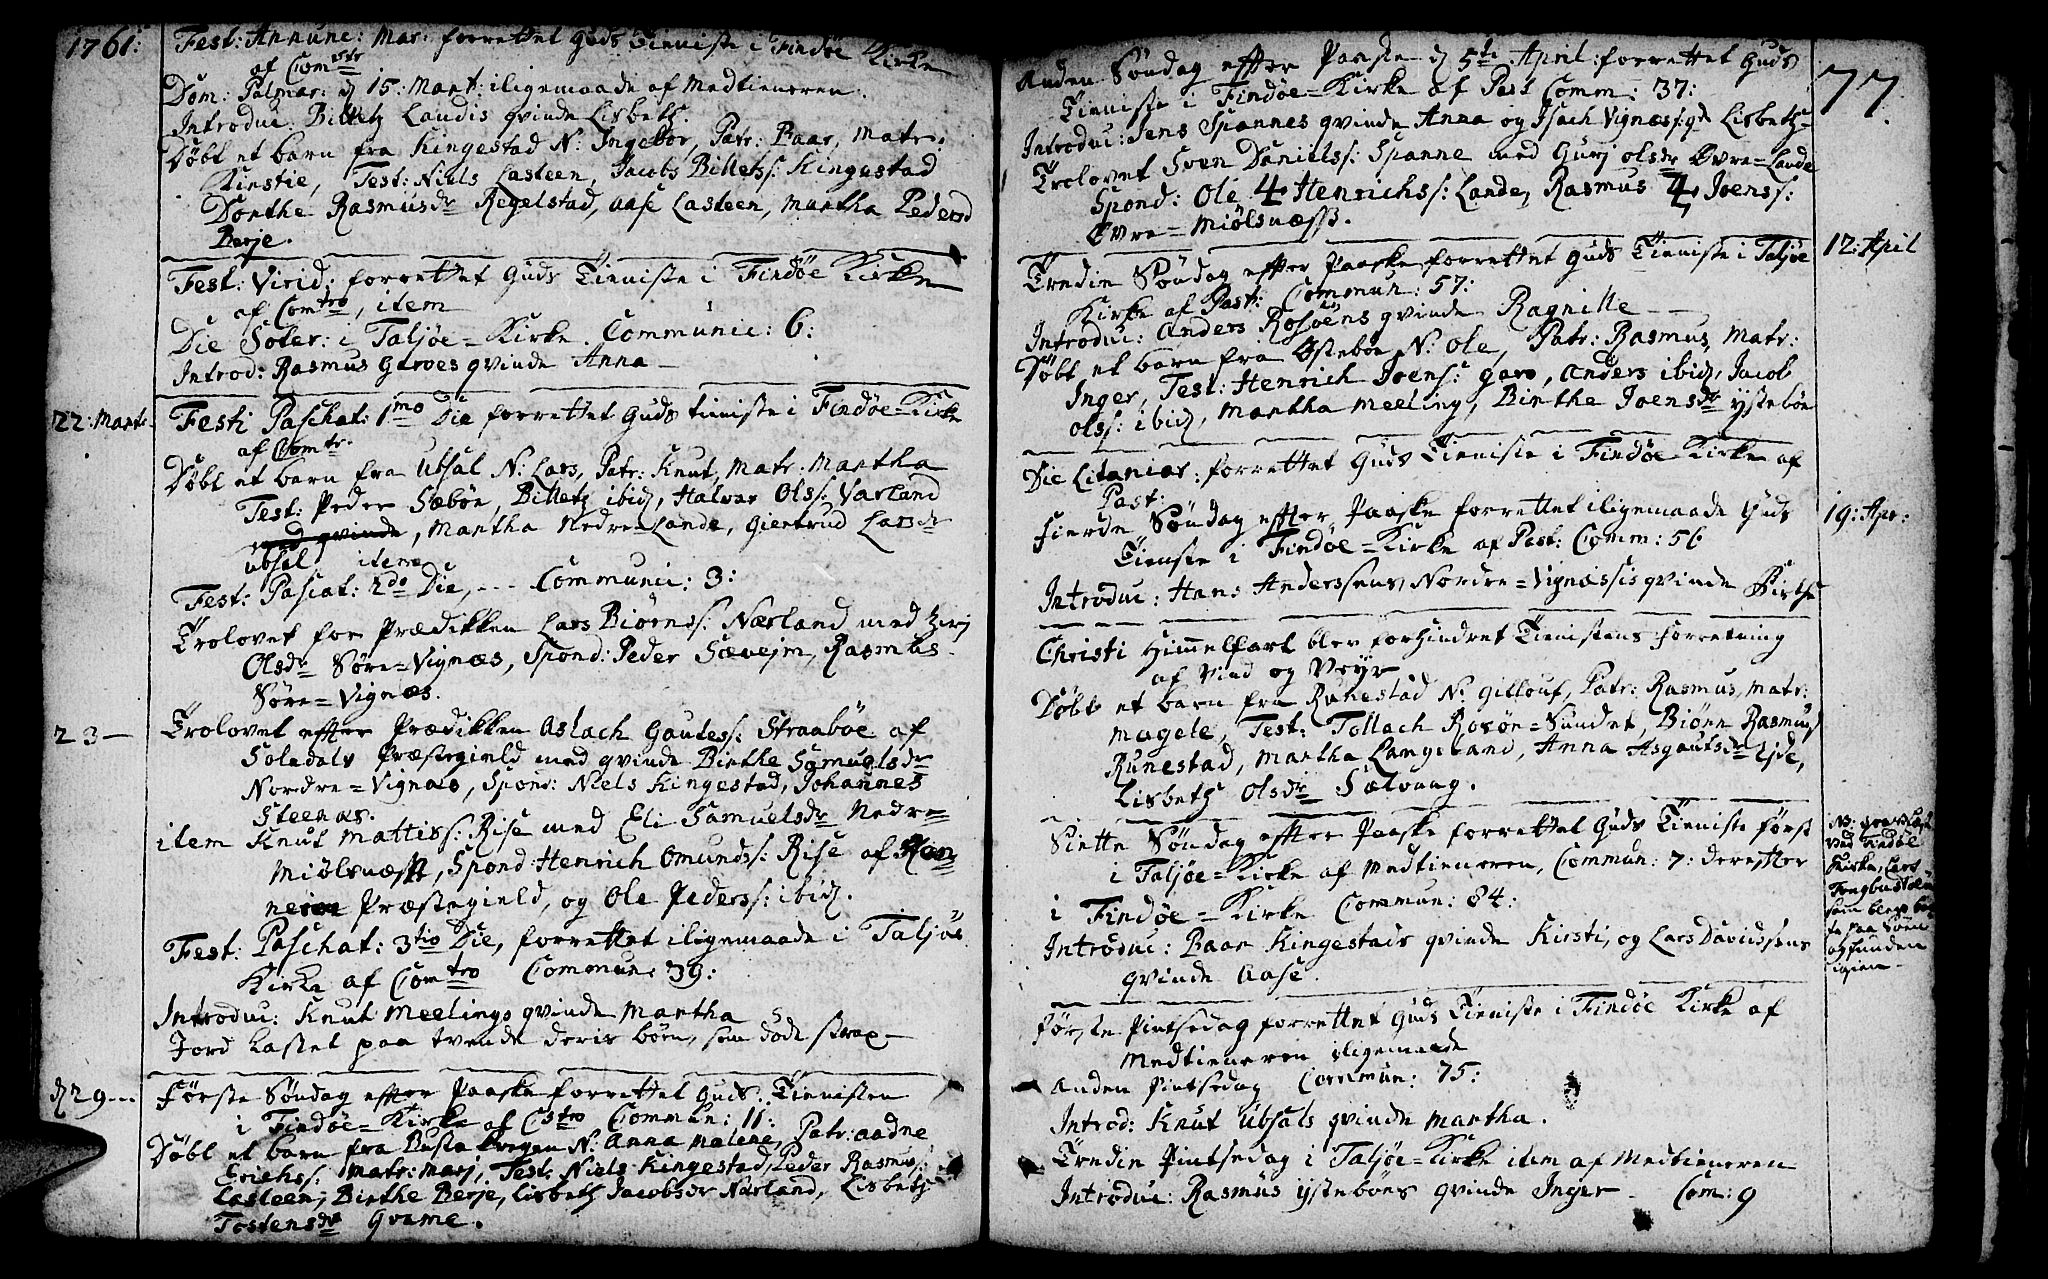 1761:
Fest: Annunc: Mar: forrettet Guds Tieniste i Findöe Kirke
af Com<sup>str</sup>
Dom: Palmar: d 15: Mart: iligemaade af Medtieneren.
Introduc: Billetz Landis qvinde Lisbeth.
Döbt et barn fra Kingestad N: Ingebor, Patr: Baar, Matr:
Kirstie, Test: Niels Lasteen, Jacob Billets: Kingestad
Dorthe Rasmusdr Regelstad, Aase Lasteen, Martha Pedersd
Berje.
Fest: Virid: forrettet Guds Tieniste i Findöe Kirke
af Com<sup>tro</sup>, item
Die Soter: i Taljöe=Kirke. Communic: 6:
Introd: Rasmus Garves qvinde Anna
22: Mart: Festi Paschat: 1<sup>mo</sup> Die forrettet Guds tieniste i Findöe=Kirke
af Com<sup>tr</sup>
Döbt et barn fra Ubsal N: Lars, Patr: Knut, Matr: Martha
Test: Peder Sæböe, Billetz ibid, Halvar Ols: Varland
med qvinde, Martha Nedre=Lande, Giertrud Larsdr
Ubsal item
Fest: Pascat: 2<sup>do</sup> Die, --- Communic: 3:
Trolovet for Prædikken Lars Biörns: Nærland med
Olsdr Söre=Vignæs, Spond: Peder Sævejm, Rasmus
Söre=Vignæs.
23 — Trolovet effter Prædikken Aslach Gautes: Straaböe af
Soledals Præstegield med qvinde Birthe Samuelsdr
Nordre=Vignæs, Spond: Niels Kingestad, Johannes
Steenæs.
item Knut Mattis: Rise med Eli Samuelsdr Nedre=
Miölsnæss, Spond: Henrich Omunds: Rise af
Præstegield, og Ole Peders: ibid.
Fest: Paschat: 3<sup>tio</sup> Die, forrettet iligemaade i Taljöe
Kirke af Com<sup>tro</sup> Commun: 39:
Introduc: Knut Meelings qvinde Martha
Jord kastet paa tvende deris börn, som döde strax
d 29 --- Förste Söndag effter Paaske forrettet Guds Tienisten
i Findöe=Kirke af C<sup>stro</sup> Commun: 11:
Döbt et barn fra N: Anna Malene, Patr: Aadne
Erichs: Matr: Marj, Test: Niels Kingestad, Peder Rasmus:
Lasteen, Birthe Berje, Lisbeth Jacobsdr Narland, Lisbeth
Tostensdr Gvame.
77.
Anden Söndag effter Paaske d 5te April: forrettet Guds
Tieniste i Findöe=Kirke af Past Comm: 37:
Introduc: Jens Spannes qvinde Anna og Isach Vignæs: qd Lisbeth
Trolovet Sven Daniels: Spanne med Gurj Olsdr Övre=Lande
Spond: Ole Henrichs: Lande, Rasmus Joens:
Övre=Miölsnæss.
Tredie Söndag effter Paaske forrettet Guds Tieniste i Taljöe 12: April
Kirke af Past: Commun: 57:
Introduc: Anders Rosöens qvinde Ragnille
Döbt et barn fra Östeböe N: Ole, Patr: Rasmus, Matr:
Inger, Test: Henrich Joens: Garv, Anders ibid, Jacob
Ols: ibid, Martha Meeling, Birthe Joensdr ÿsteböe
Die Litaniar: forrettet Guds Tieniste i Findöe=Kirke af
Past:
Fierde Söndag effter Paaske forrettet iligemaade Guds 19: Apr:
Tieniste i Findöe=Kirke af Past: Comm: 56
Introduc: Hans Anderssens Nordre=Vignæssis qvinde Birthe
Christi Himmelfart blev forhindret Tienistens Forretning
af Vind og Veÿr
Döbt et barn fra Runestad N: Gillouf, Patr: Rasmus, Matr:
Magele, Test: Tollach Rosöe=Sundet, Biörn Rasmus
Runestad, Martha Langeland, Anna Asgautsdr Eide,
Lisbeth Olsdr Sælvaag.
Siette Söndag effter Paaske forrettet Guds Tieniste först
i Taljöe=Kirke af Medtieneren, Commun: 7: dereffter
i Findöe=Kirke Commun: 84:
Introduc: Baar Kingestads qvinde Kirsti, og Lars Davidssens
qvinde Aase.
NB:
ved Findöe
Kirke, Lars
som blev
paa Söen
og funden
igien
Förste Pintsedag forrettet Guds Tieniste i Findöe Kirke af
Medtieneren iligemaade
Anden Pintsedag Commun: 75:
Introd: Knut Ubsals qvinde Martha.
Tredie Pintsedag i Taljöe=Kirke item af Medtieneren
Introduc: Rasmus ÿsteböes qvinde Inger - Com: 9